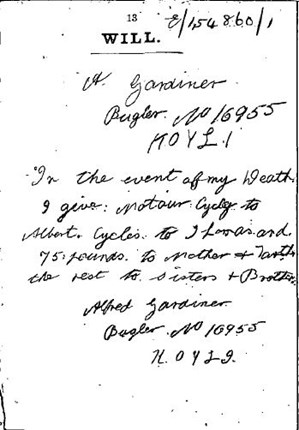 13
E/154860/1
WILL.
A. Gardiner
Bugler. No 16955
KOYLI
In the event of my Death
I give: Motour Cycle to
Albert. Cycles to J Lovas and
75 pounds. to Mother &
the rest to Sisters & Brother.
Alfred Gardiner
Bugler No 16955
K.O.Y.L.I.